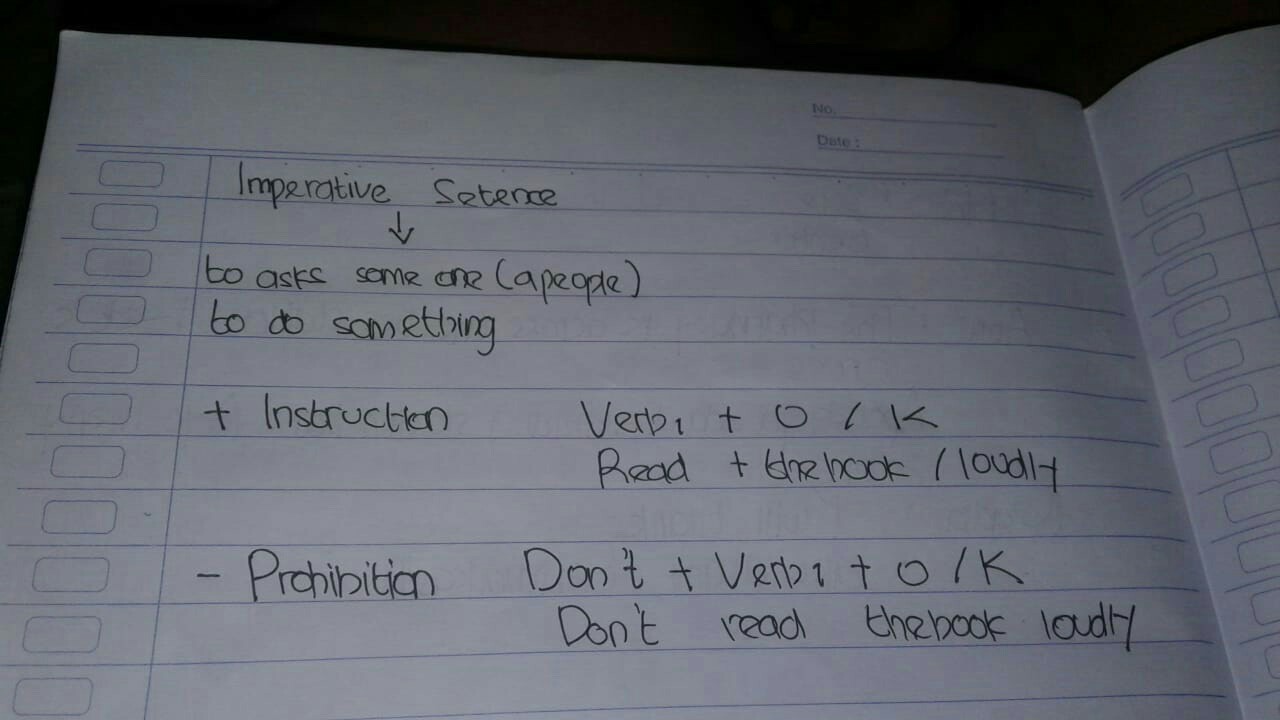 No.
Date :
Imperative Setence
↓
to asks some one (a people)
to do something
+ Instruction Verb1 + O / K
Read + the book / loudly
- Prohibition Don't + Verb1 + O / K
Don't read the book loudly